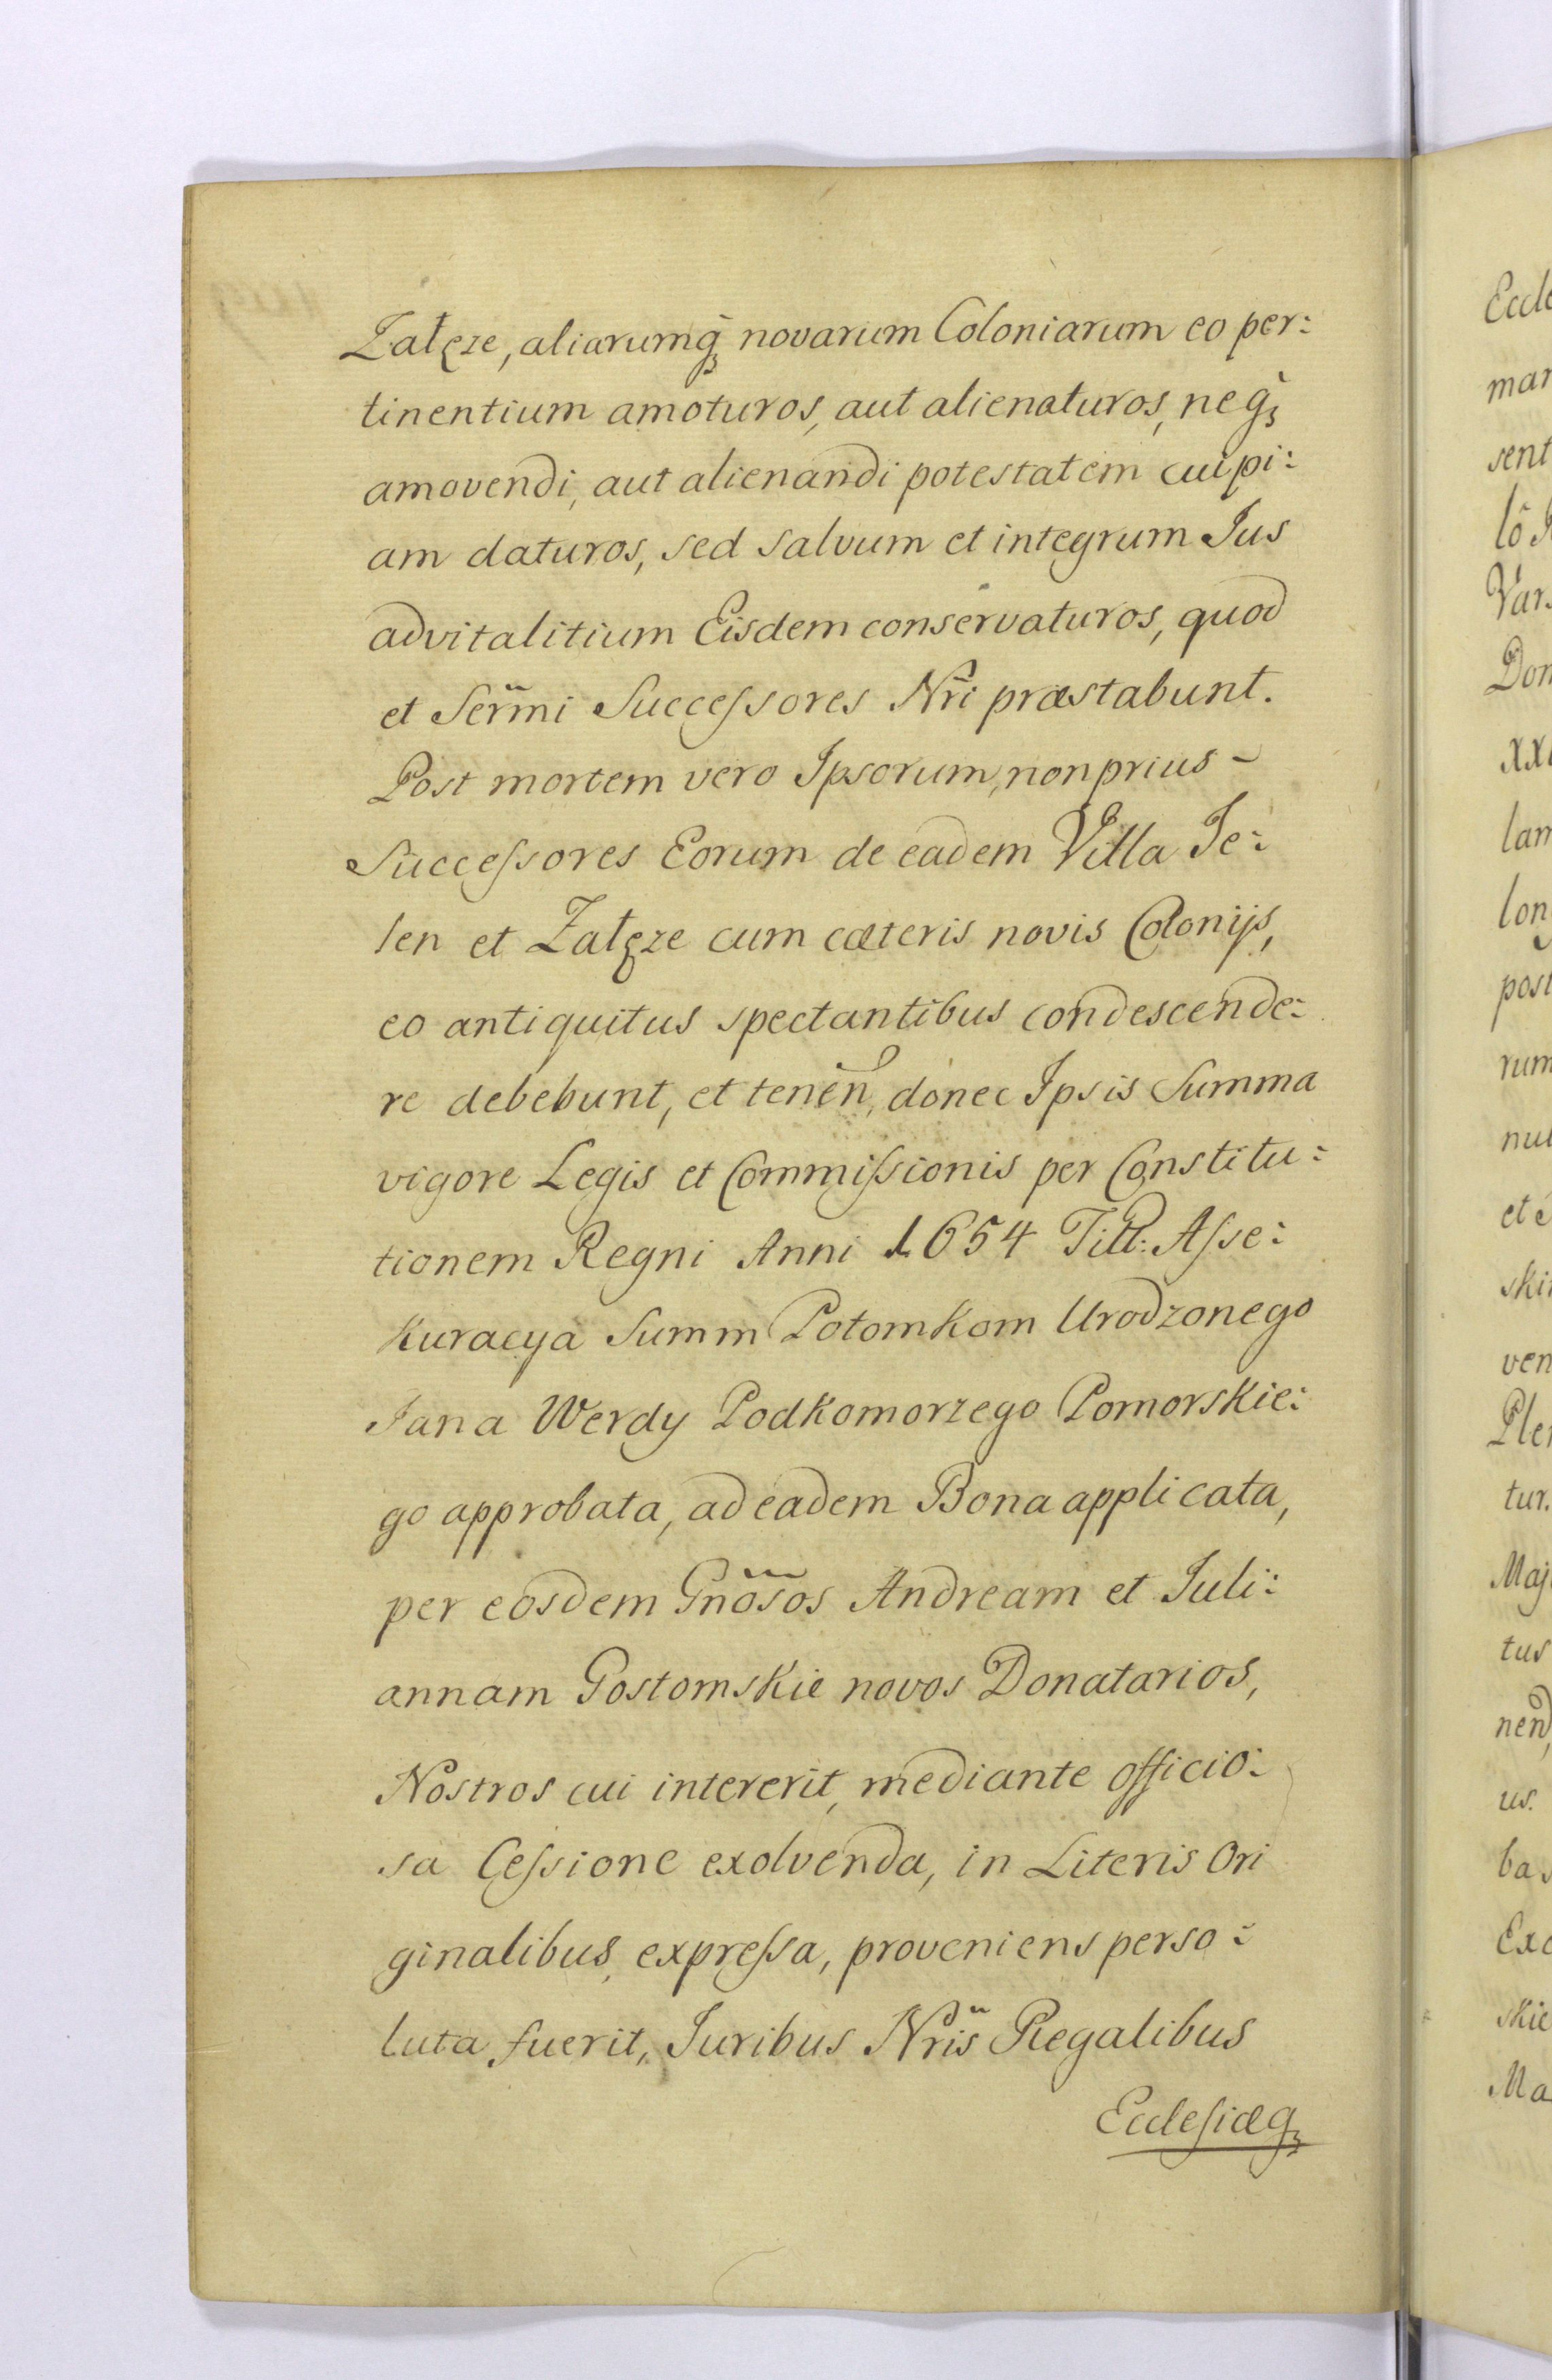 Załęze, aliarumq̀ʒ novarum Coloniarum eo per:
tinentium amoturos, aut alienaturos, neq̀ʒ
amovendi, aut alienandi potestatem cuipi:
am daturos, sed salvum et integrum Jus
advitalitium Eisdem conservaturos, quod
et Serm̃i Succeſsores Nr̃i præstabunt.
Post mortem vero Ipsorum, non prius -
Succeſsores Eorum de eadem Villa Je:
len et Załęze cum cæteris novis Colonijs,
eo antiquitus spectantibus condescende:
re debebunt, et teneñ, donec Ipsis Summa
vigore Legis et Commiſsionis per Constitu:
tionem Regni Anni 1654 Titt: Aſse:
kuracya Summ Potomkom Urodzonego
Jana Werdy Podkomorzego Pomorskie:
go approbata, ad eadem Bona applicata,
per eosdem Gnõsos Andream et Juli:
annam Gostomskie novos Donatarios,
Nostros cui intererit, mediante officio:
sa Ceſsione exolvenda, in Literis Ori
ginalibus, expreſsa, proveniens perso:
luta fuerit, Juribus Nr̃is Regalibus
Eccleſiæqʒ
Eccle
mar
sent
lô J
Var.
Don
xxi
lam
lon
post
rum
nul
et e
skin
ven
Plen
tur.
Maj
tus
neñ,
us.
bas
Exc
skie
Ma